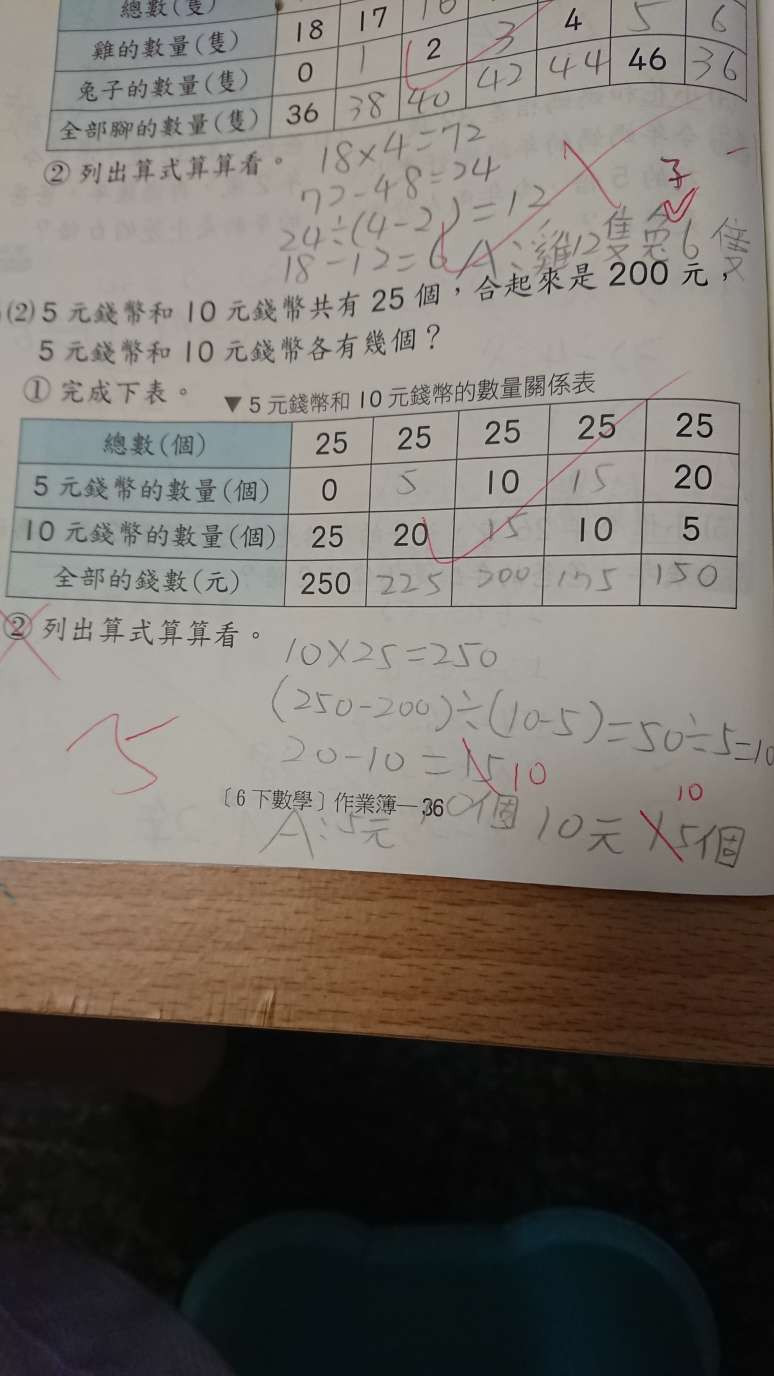 總數(隻)
雞的數量(隻) 18 17 16 4 5 6
兔子的數量(隻) 0 1 2 3
全部腳的數量(隻) 36 38 40 42 44 46 36
② 列出算式算算看。 18×4=72
72-48=24
24÷(4-2)=12
18-12=6 A:雞12隻兔6隻
子
(2) 5元錢幣和10元錢幣共有25個,合起來是200元,
5元錢幣和10元錢幣各有幾個?
① 完成下表。 ▼5元錢幣和10元錢幣的數量關係表
總數(個) 25 25 25 25 25
5元錢幣的數量(個) 0 5 10 15 20
10元錢幣的數量(個) 25 20 15 10 5
全部的錢數(元) 250 225 200 175 150
② 列出算式算算看。
10×25=250
(250-200)÷(10-5)=50÷5=10
20-10=15 10
〔6下數學〕作業簿—36
10
A:5元 10個 10元 15個